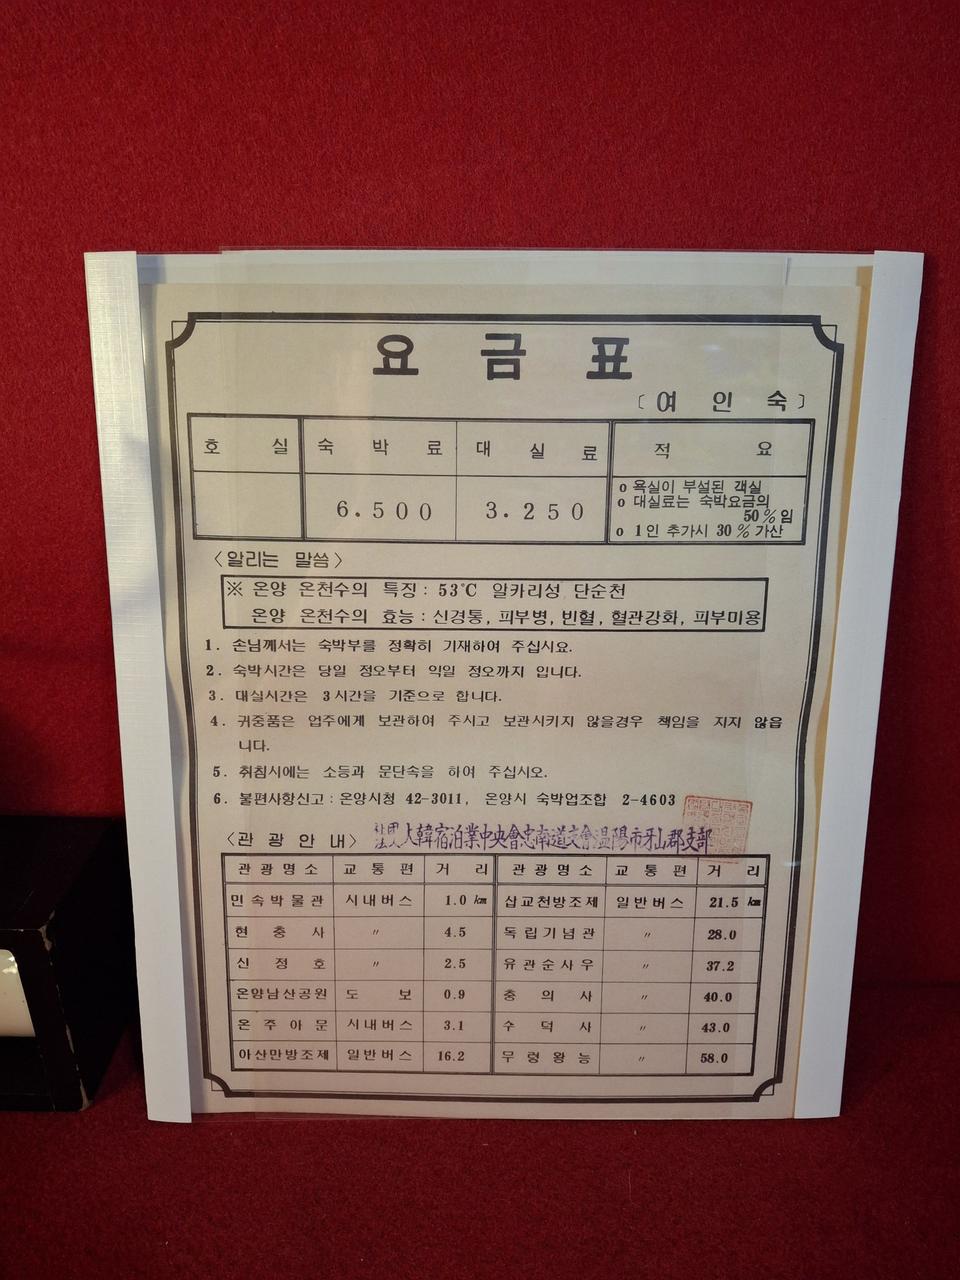 요금표
〔여인숙〕
호실 숙박료 대실료 적요
6.500 3.250
o 욕실이 부설된 객실
o 대실료는 숙박요금의
50%임
o 1인 추가시 30% 가산
〈알리는 말씀〉
※ 온양 온천수의 특징 : 53℃ 알카리성 단순천
온양 온천수의 효능 : 신경통, 피부병, 빈혈, 혈관강화, 피부미용
1. 손님께서는 숙박부를 정확히 기재하여 주십시요.
2. 숙박시간은 당일 정오부터 익일 정오까지 입니다.
3. 대실시간은 3시간을 기준으로 합니다.
4. 귀중품은 업주에게 보관하여 주시고 보관시키지 않을경우 책임을 지지 않읍
니다.
5. 취침시에는 소등과 문단속을 하여 주십시오.
6. 불편사항신고 : 온양시청 42-3011, 온양시 숙박업조합 2-4603
〈관광안내〉 社團法人 大韓宿泊業中央會忠南道支會温陽市牙山郡支部
관광명소 교통편 거리 관광명소 교통편 거리
민속박물관 시내버스 1.0㎞ 삽교천방조제 일반버스 21.5㎞
현충사 〃 4.5 독립기념관 〃 28.0
신정호 〃 2.5 유관순사우 〃 37.2
온양남산공원 도보 0.9 충의사 〃 40.0
온주아문 시내버스 3.1 수덕사 〃 43.0
아산만방조제 일반버스 16.2 무령왕능 〃 58.0